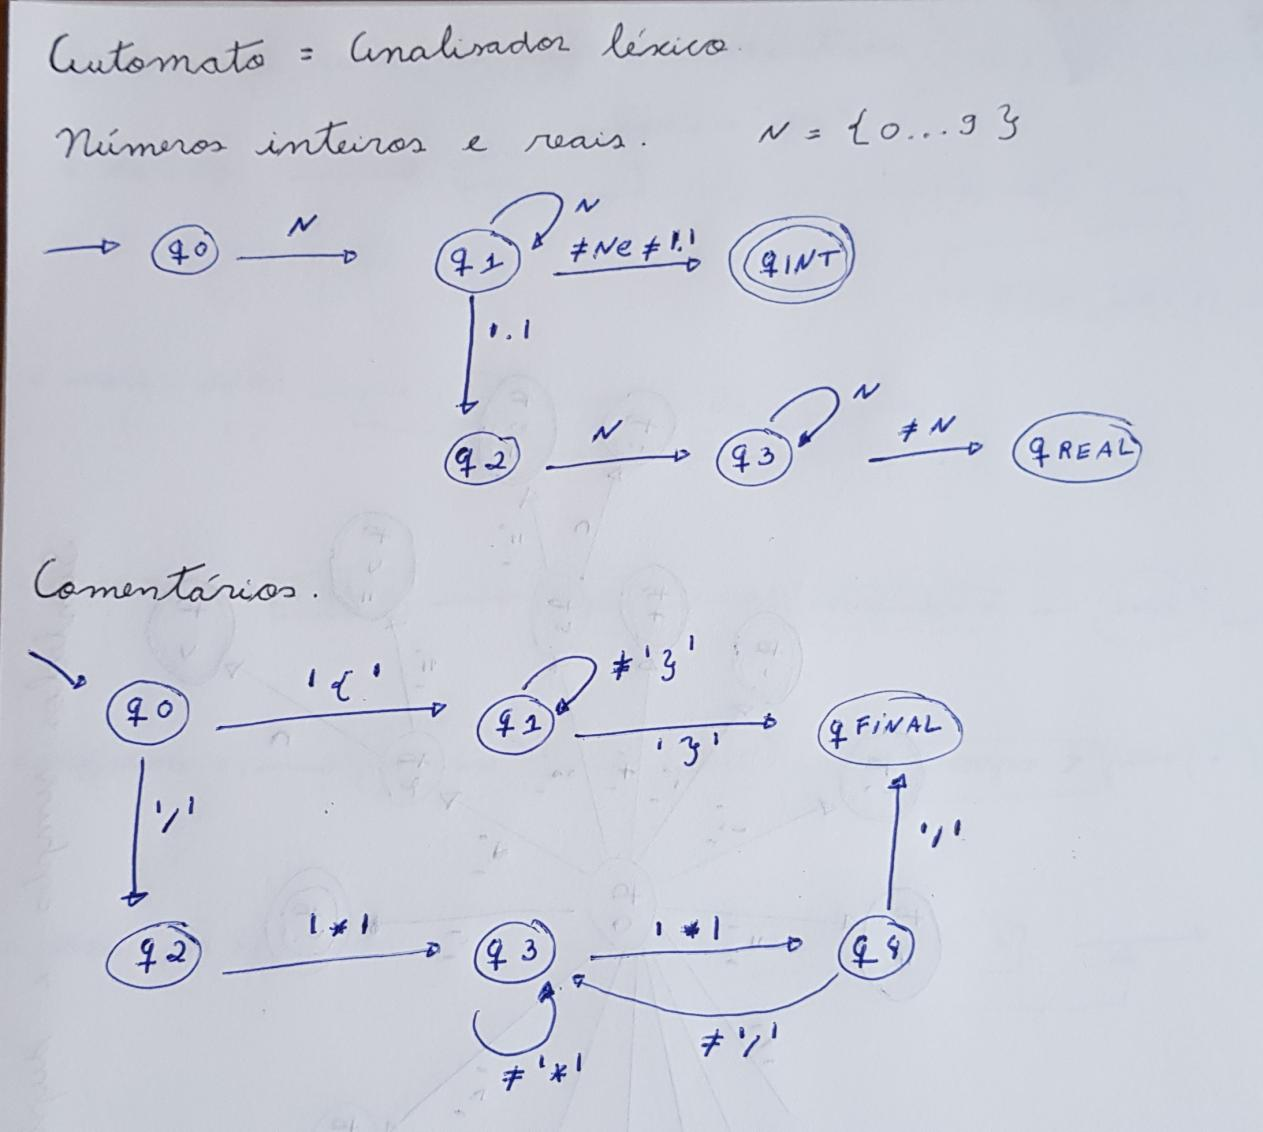 Automato = Analisador léxico.
Números inteiros e reais. N = {0...9}
N
q0 N q1 ≠N e ≠'.' qINT
'.'
N
q2 N q3 ≠N qREAL
Comentários.
≠'}'
q0 '{' q1 '}' qFINAL
'/' '/'
q2 '*' q3 '*' q4
≠'*' ≠'/'